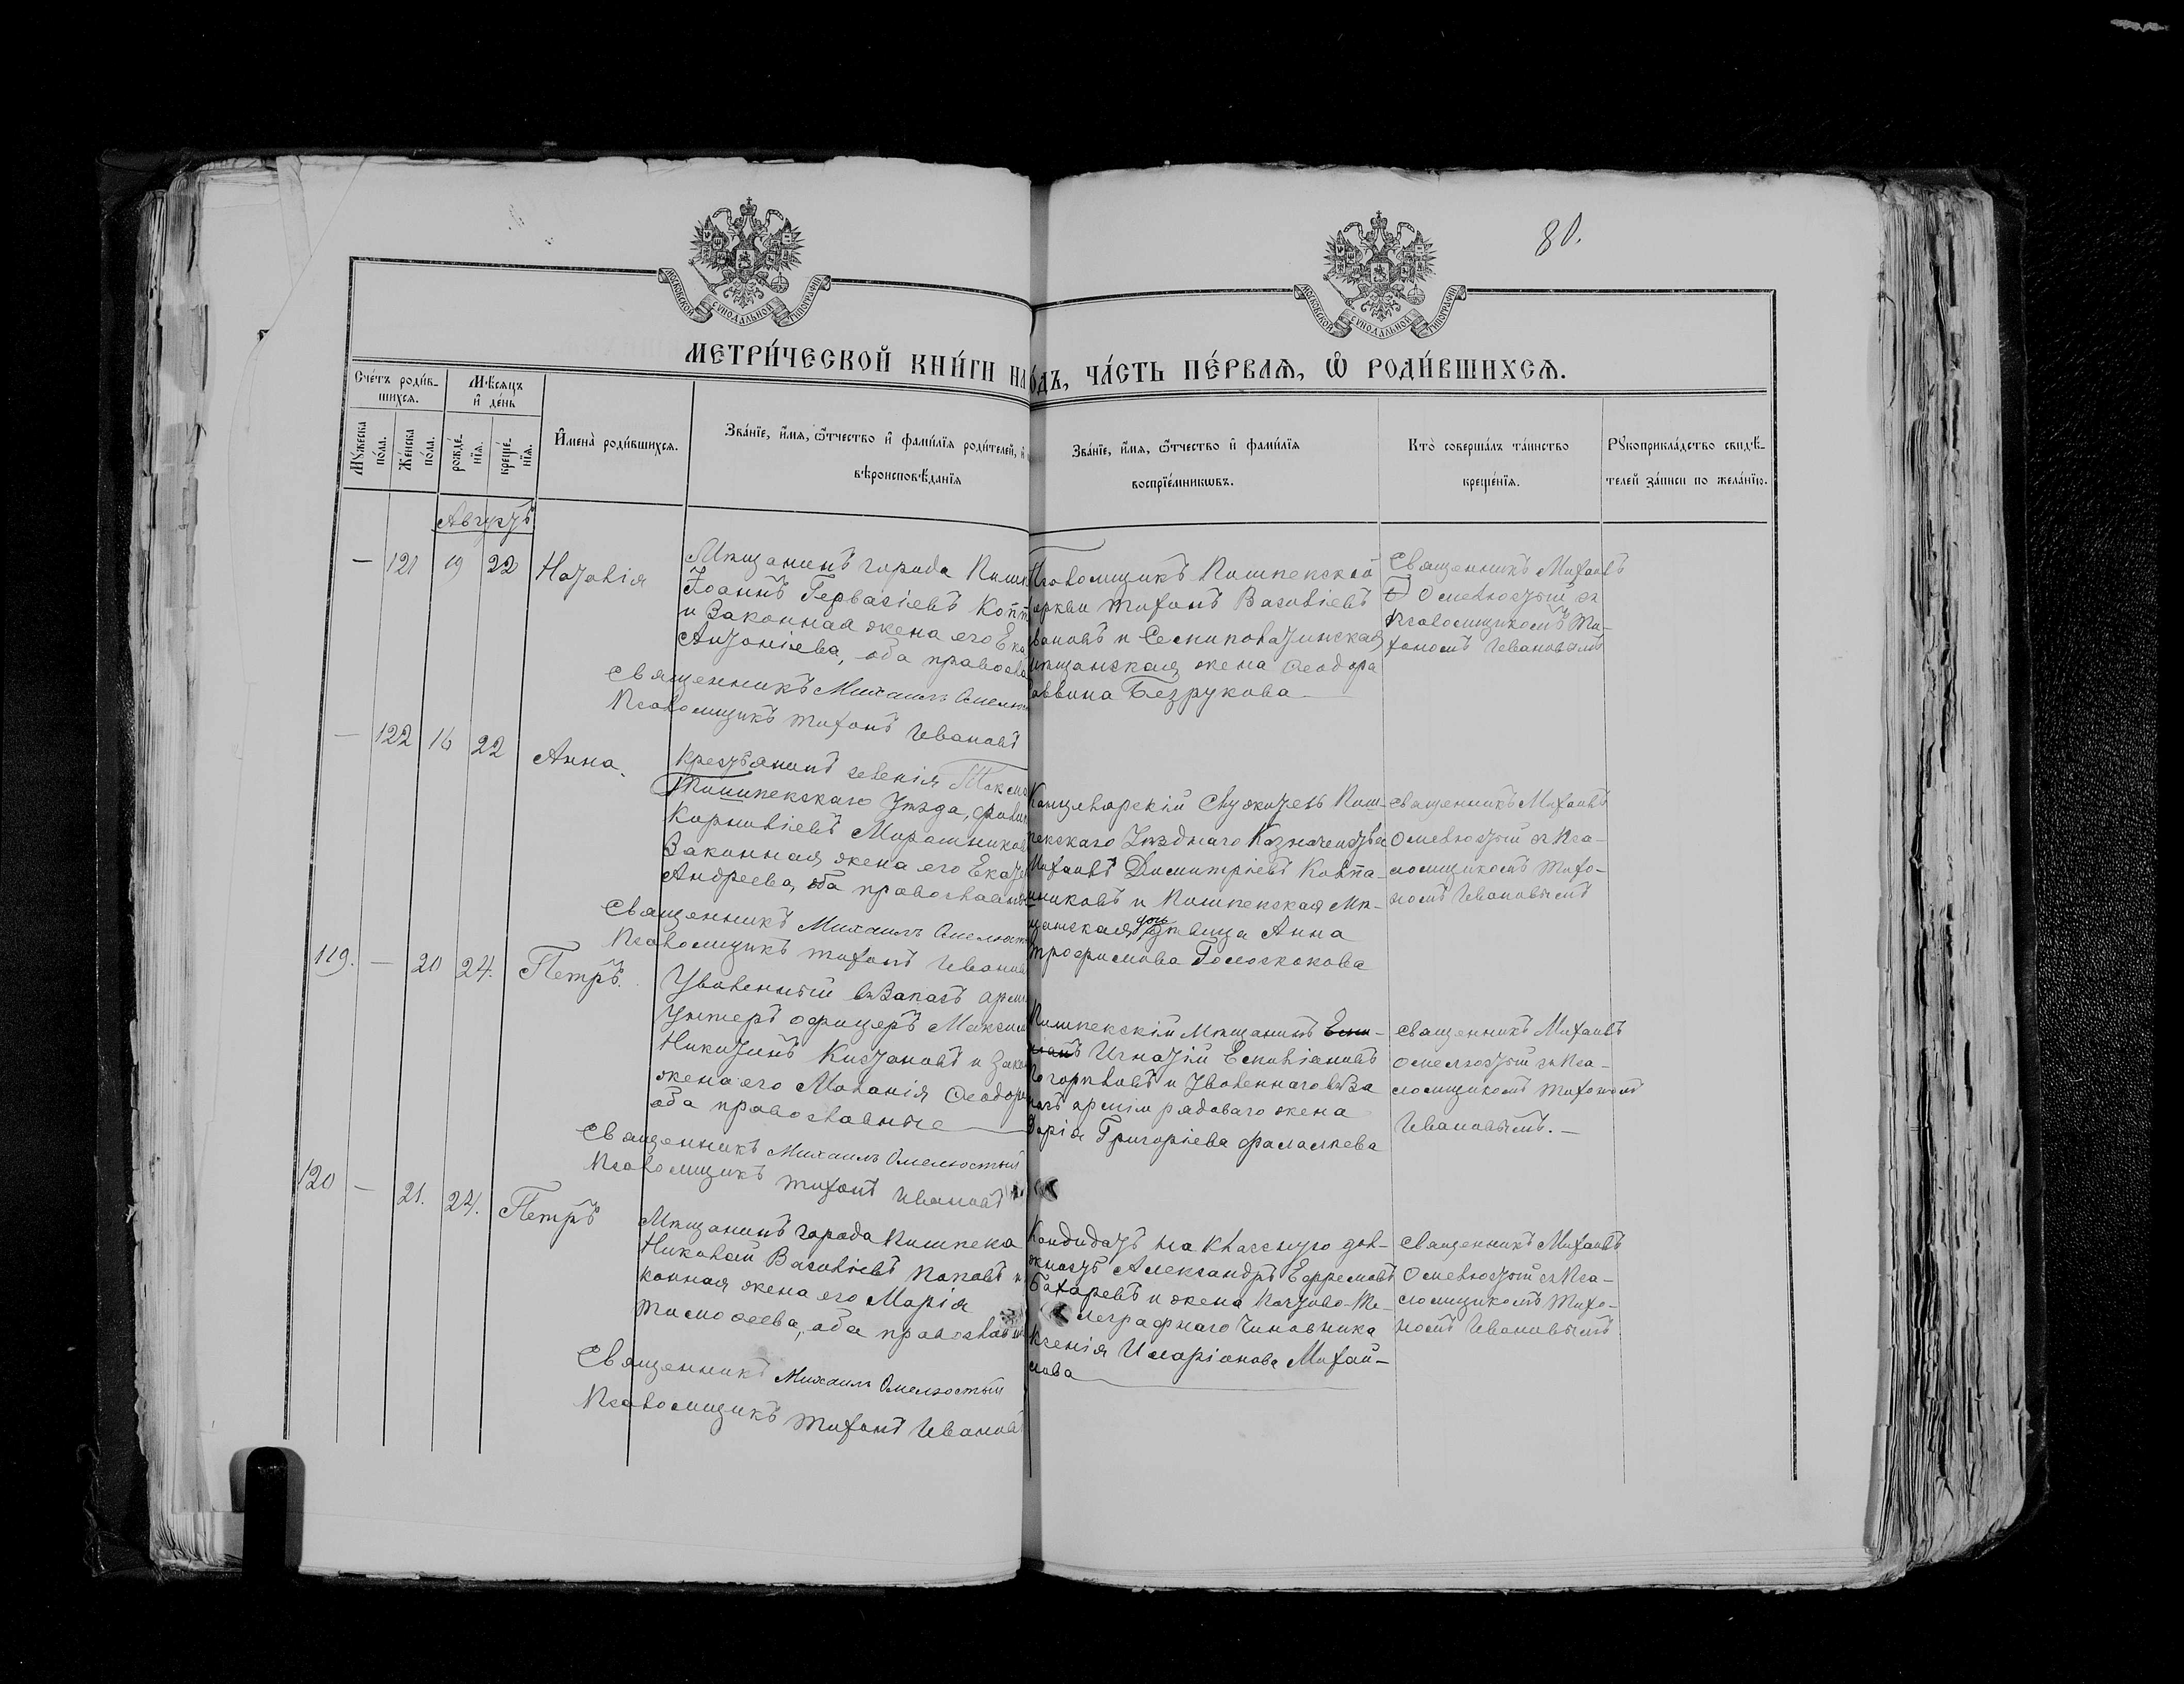 80.
МОСКОВСКОЙ СѴНОДАЛЬНОЙ ТИПОГРАФІИ
МОСКОВСКОЙ СѴНОДАЛЬНОЙ ТИПОГРАФІИ
МЕТРИ́ЧЕСКОЙ КНИ́ГИ НА
О́ДЪ, ЧА́СТЬ ПЕ́РВАѦ, Ѡ҆ РОДИ́ВШИХСѦ.
Сче́тъ роди́в-
шихсѧ.
Мѣ́сѧцъ
и҆ де́нь
Мꙋ́жеска
по́ла.
Же́нска
по́ла.
рожде́-
нїѧ.
креще́-
нїѧ.
И҆мена̀ роди́вшихсѧ.
Зва́нїе, и҆́мѧ, ѻ҆́тчество и҆ фами́лїѧ роди́телей, и҆
вѣроисповѣ́данїѧ
Зва́нїе, и҆́мѧ, ѻ҆́тчество и҆ фами́лїѧ
воспрїе́мникѡвъ.
Кто̀ соверша́лъ та́инство
креще́нїѧ.
Рꙋкоприкла́дство свидѣ́-
телей за́писи по жела́нїю.
Августъ
— 121 19 22 Наталія
Мѣщанинъ города Пишп
Іоаннъ Гервасіевъ
и законная жена его Ека
Антоніева, оба правосла
Священникъ Михаилъ Омелюст
Псаломщикъ Тихонъ Ивановъ
Псаломщикъ Пишпекской
церкви Тихонъ Василіевъ
Ивановъ и Семипалатинская
мѣщанская жена Ѳеодора
Саввина Безрукова —
Священникъ Михаилъ
Омелюстый съ
Псаломщикомъ Ти-
хономъ Ивановымъ
— 122 16 22 Анна.
Крестьянинъ селенія Токма
Пишпекскаго Уѣзда, Филип
Корниліевъ Мирошников
Законная жена его Екате
Андреева, оба православн
Священникъ Михаилъ Омелюст
Псаломщикъ Тихонъ Ивановъ
Канцелярскій Служитель Пиш-
пекскаго Уѣзднаго Казначейства
Михаилъ Димитріевъ Колпа-
никовъ и Пишпекская мѣ-
щанская дочь дѣвица Анна
Трофимова Голоскокова
Священникъ Михаилъ
Омелюстый съ Пса-
ломщикомъ Тихо-
номъ Ивановымъ
119. — 20 24. Петръ.
Уволенный въ Запасъ арм
Унтеръ офицеръ Максим
Никитинъ Кистановъ и Зако
жена его Меланія Ѳеодор
оба православные
Священникъ Михаилъ Омелюстый
Псаломщикъ Тихонъ Ивановъ
Пишпекскій Мѣщанинъ Еми-
ланъ Игнатій Емиліановъ
Погорѣловъ и Уволеннаго въ За
пасъ арміи рядоваго жена
Дарія Григоріева Фаламѣева
Священникъ Михаилъ
Омелюстый съ Пса-
ломщикомъ Тихономъ
Ивановымъ. —
120 — 21. 24. Петръ
Мѣщанинъ города Пишпека
Николай Василіевъ Поповъ и
конная жена его Марія
Тимоѳеева, оба православн
Священникъ Михаилъ Омелюстый
Псаломщикъ Тихонъ Ивановъ
Кандидатъ на Классную дол-
жность Александръ Ефремовъ
Бахаревъ и жена Почтово-Те-
леграфнаго Чиновника
Ксенія Иларіонова Михай-
лова
Священникъ Михаилъ
Омелюстый съ Пса-
ломщикомъ Тихо-
номъ Ивановымъ